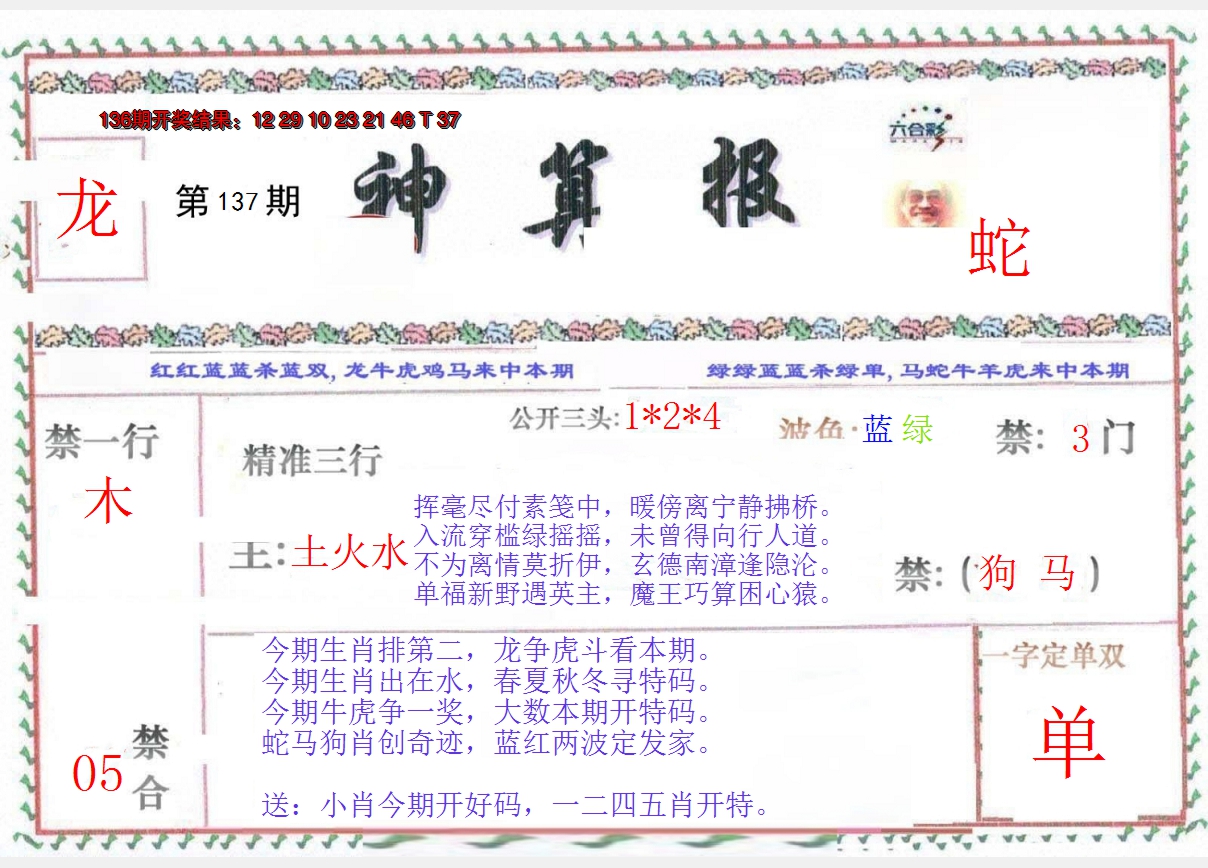 136期开奖结果：12 29 10 23 21 46 T 37
六合彩
龙
第137期
神算报
蛇
红红蓝蓝杀蓝双,龙牛虎鸡马来中本期
绿绿蓝蓝杀绿单,马蛇牛羊虎来中本期
公开三头:1*2*4
波色:蓝 绿
禁: 3门
禁一行
木
精准三行
主:土火水
挥毫尽付素笺中，暖傍离宁静拂桥。
入流穿槛绿摇摇，未曾得向行人道。
不为离情莫折伊，玄德南漳逢隐沦。
单福新野遇英主，魔王巧算困心猿。
禁:(狗 马)
今期生肖排第二，龙争虎斗看本期。
今期生肖出在水，春夏秋冬寻特码。
今期牛虎争一奖，大数本期开特码。
蛇马狗肖创奇迹，蓝红两波定发家。
送：小肖今期开好码，一二四五肖开特。
05
禁合
一字定单双
单